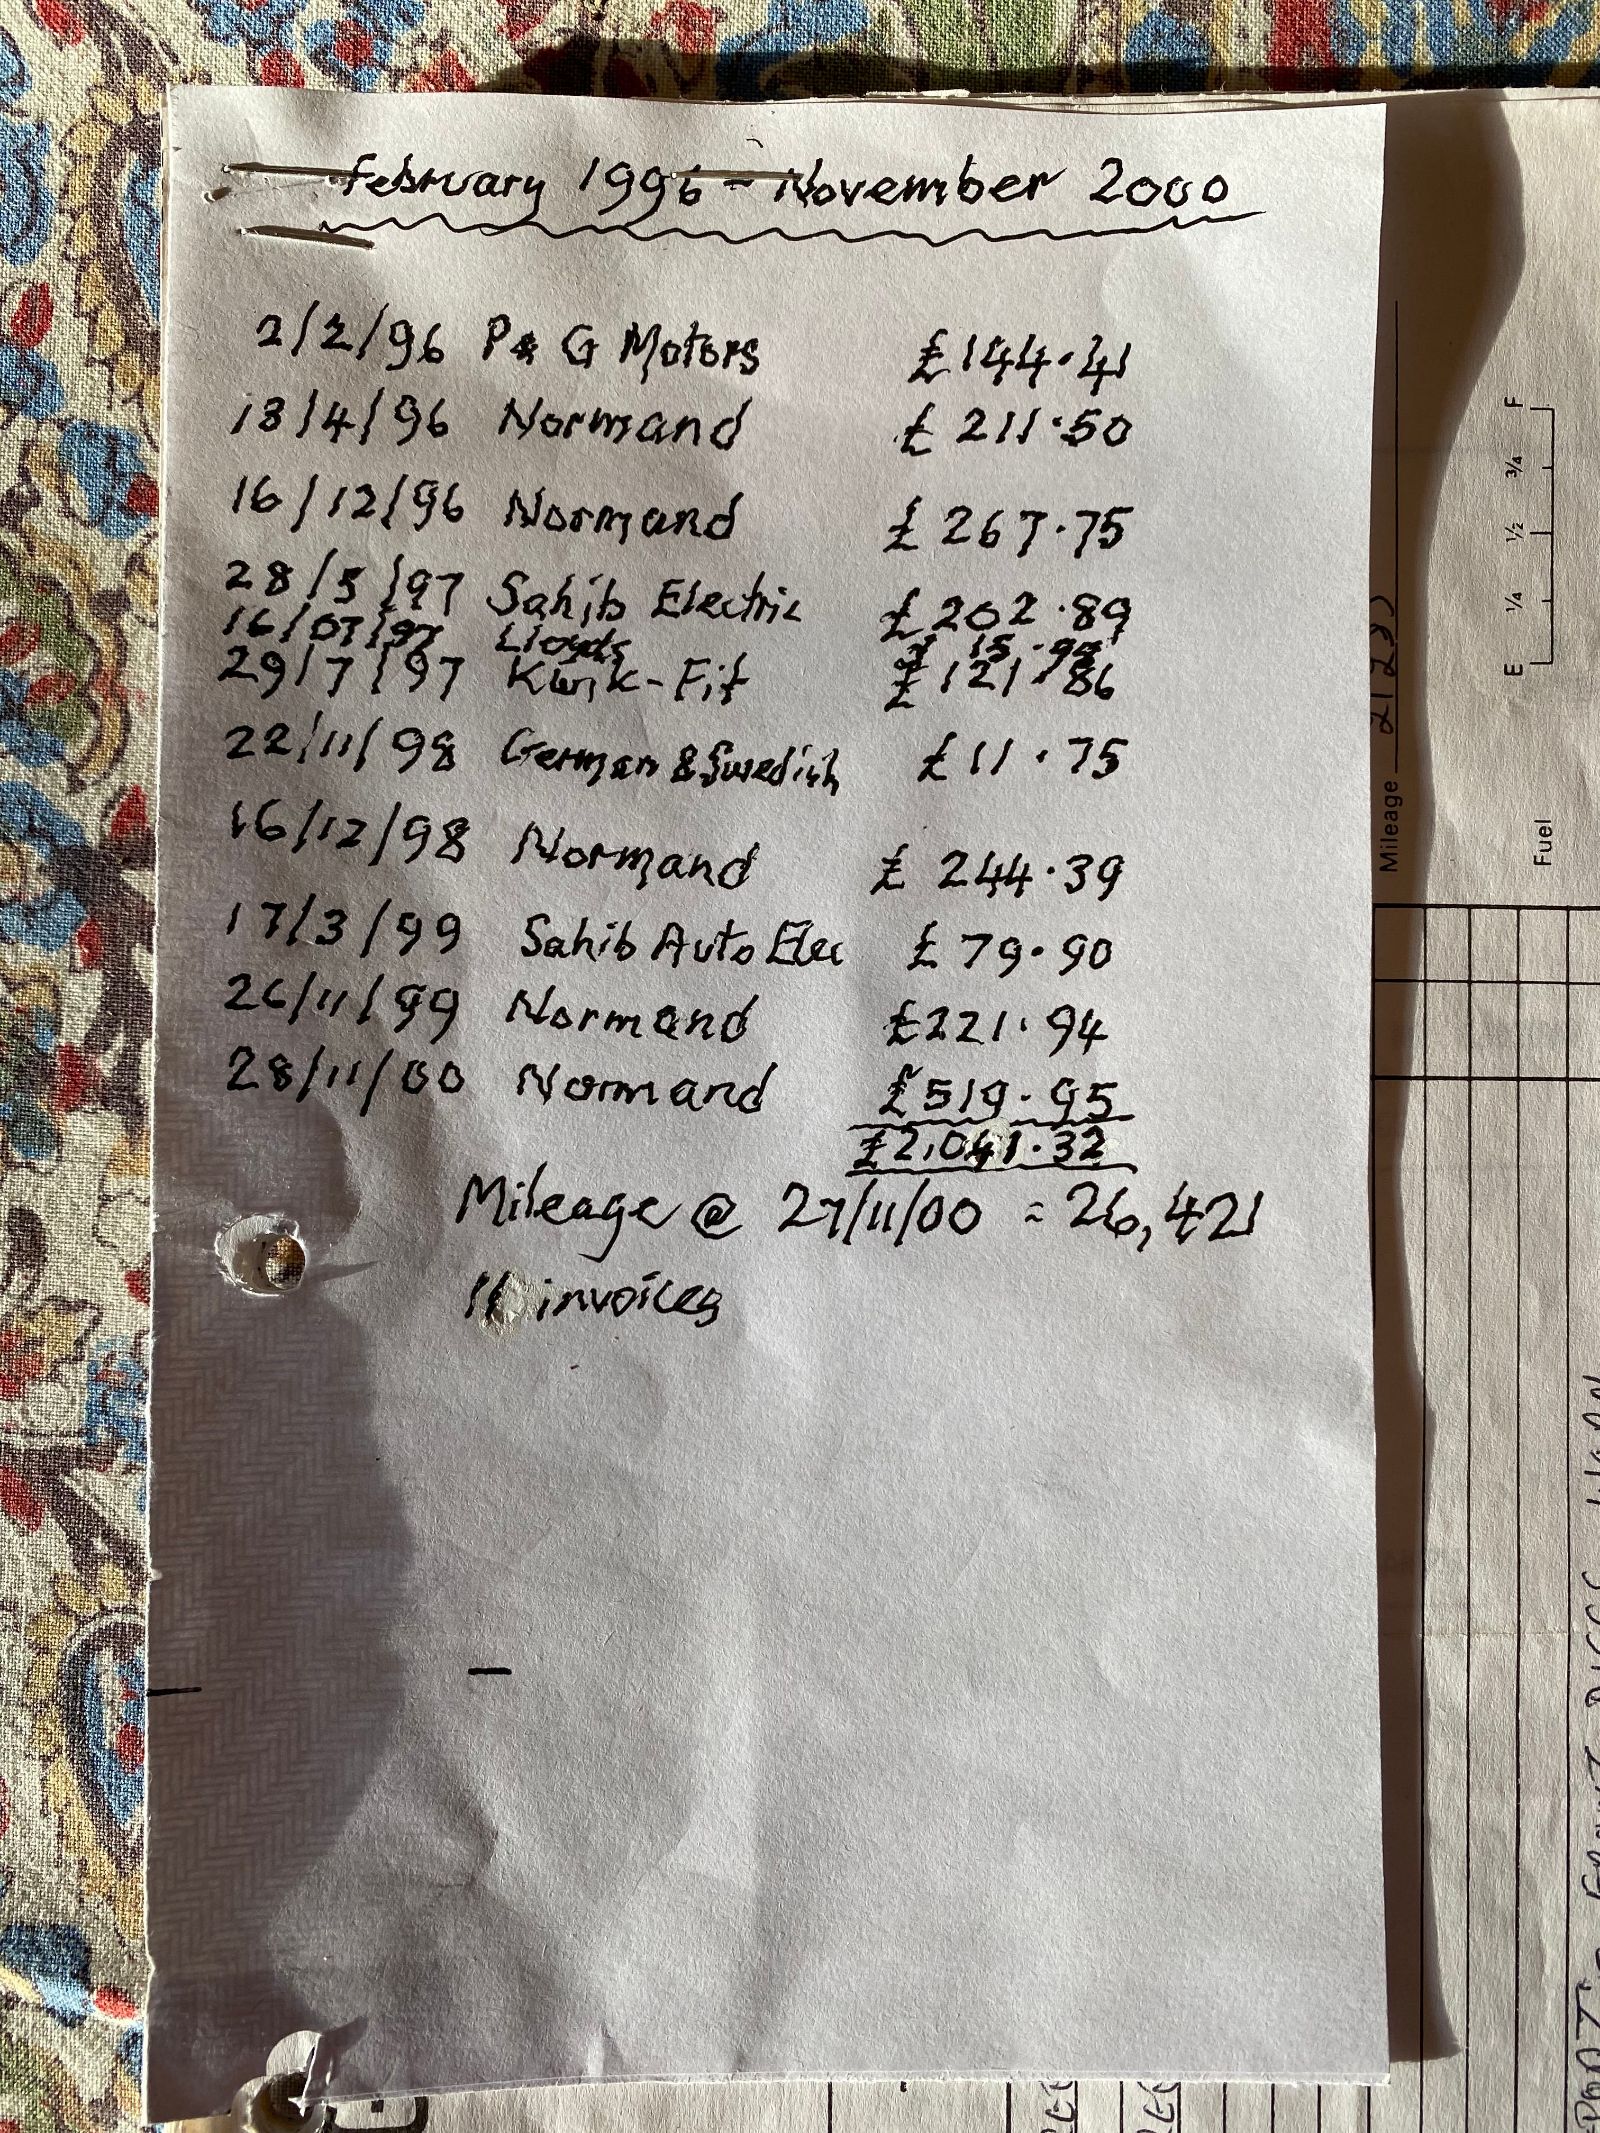 February 1996 - November 2000
2/2/96 P & G Motors £144.41
18/4/96 Normand £211.50
16/12/96 Normand £267.75
28/5/97 Sahib Electric £202.89
16/07/97 Lloyds
29/7/97 Kwik-Fit £121.86
22/11/98 German & Swedish £11.75
16/12/98 Normand £244.39
17/3/99 Sahib Auto Elec £79.90
26/11/99 Normand £221.94
28/11/00 Normand £519.95
£2,041.32
Mileage @ 27/11/00 = 26,421
11 invoices
Mileage
Fuel E ¼ ½ ¾ F